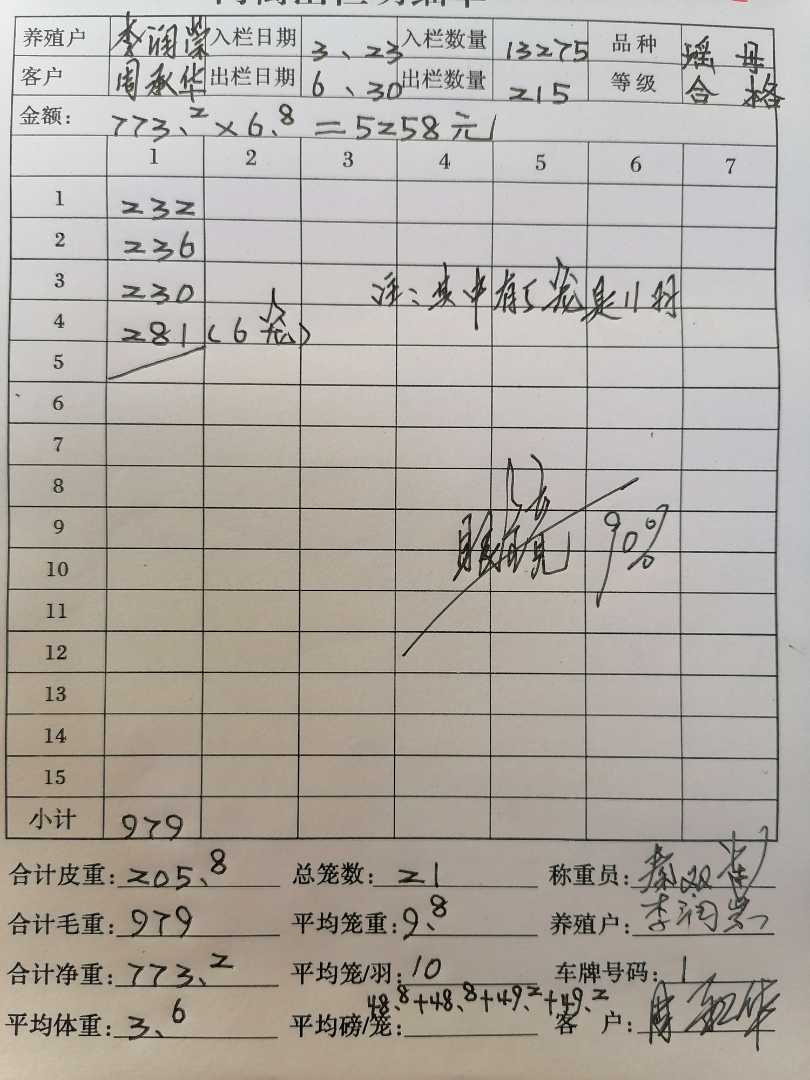 养殖户 李润崇 入栏日期 3、23 入栏数量 13275 品种 瑶母
客户 周承华 出栏日期 6、30 出栏数量 215 等级 合格
金额: 773.2×6.8=5258元
1 2 3 4 5 6 7
1 232
2 236
3 230 注:其中有5笼是11羽
4 281(6笼)
5
6
7
8
9 90%
10
11
12
13
14
15
小计 979
合计皮重: 205.8 总笼数: 21 称重员:
合计毛重: 979 平均笼重: 9.8 养殖户: 李润崇
合计净重: 773.2 平均笼/羽: 10 车牌号码: 1
48.8+48.8+49.2+49.2
平均体重: 3.6 平均磅/笼: 客户: 周承华